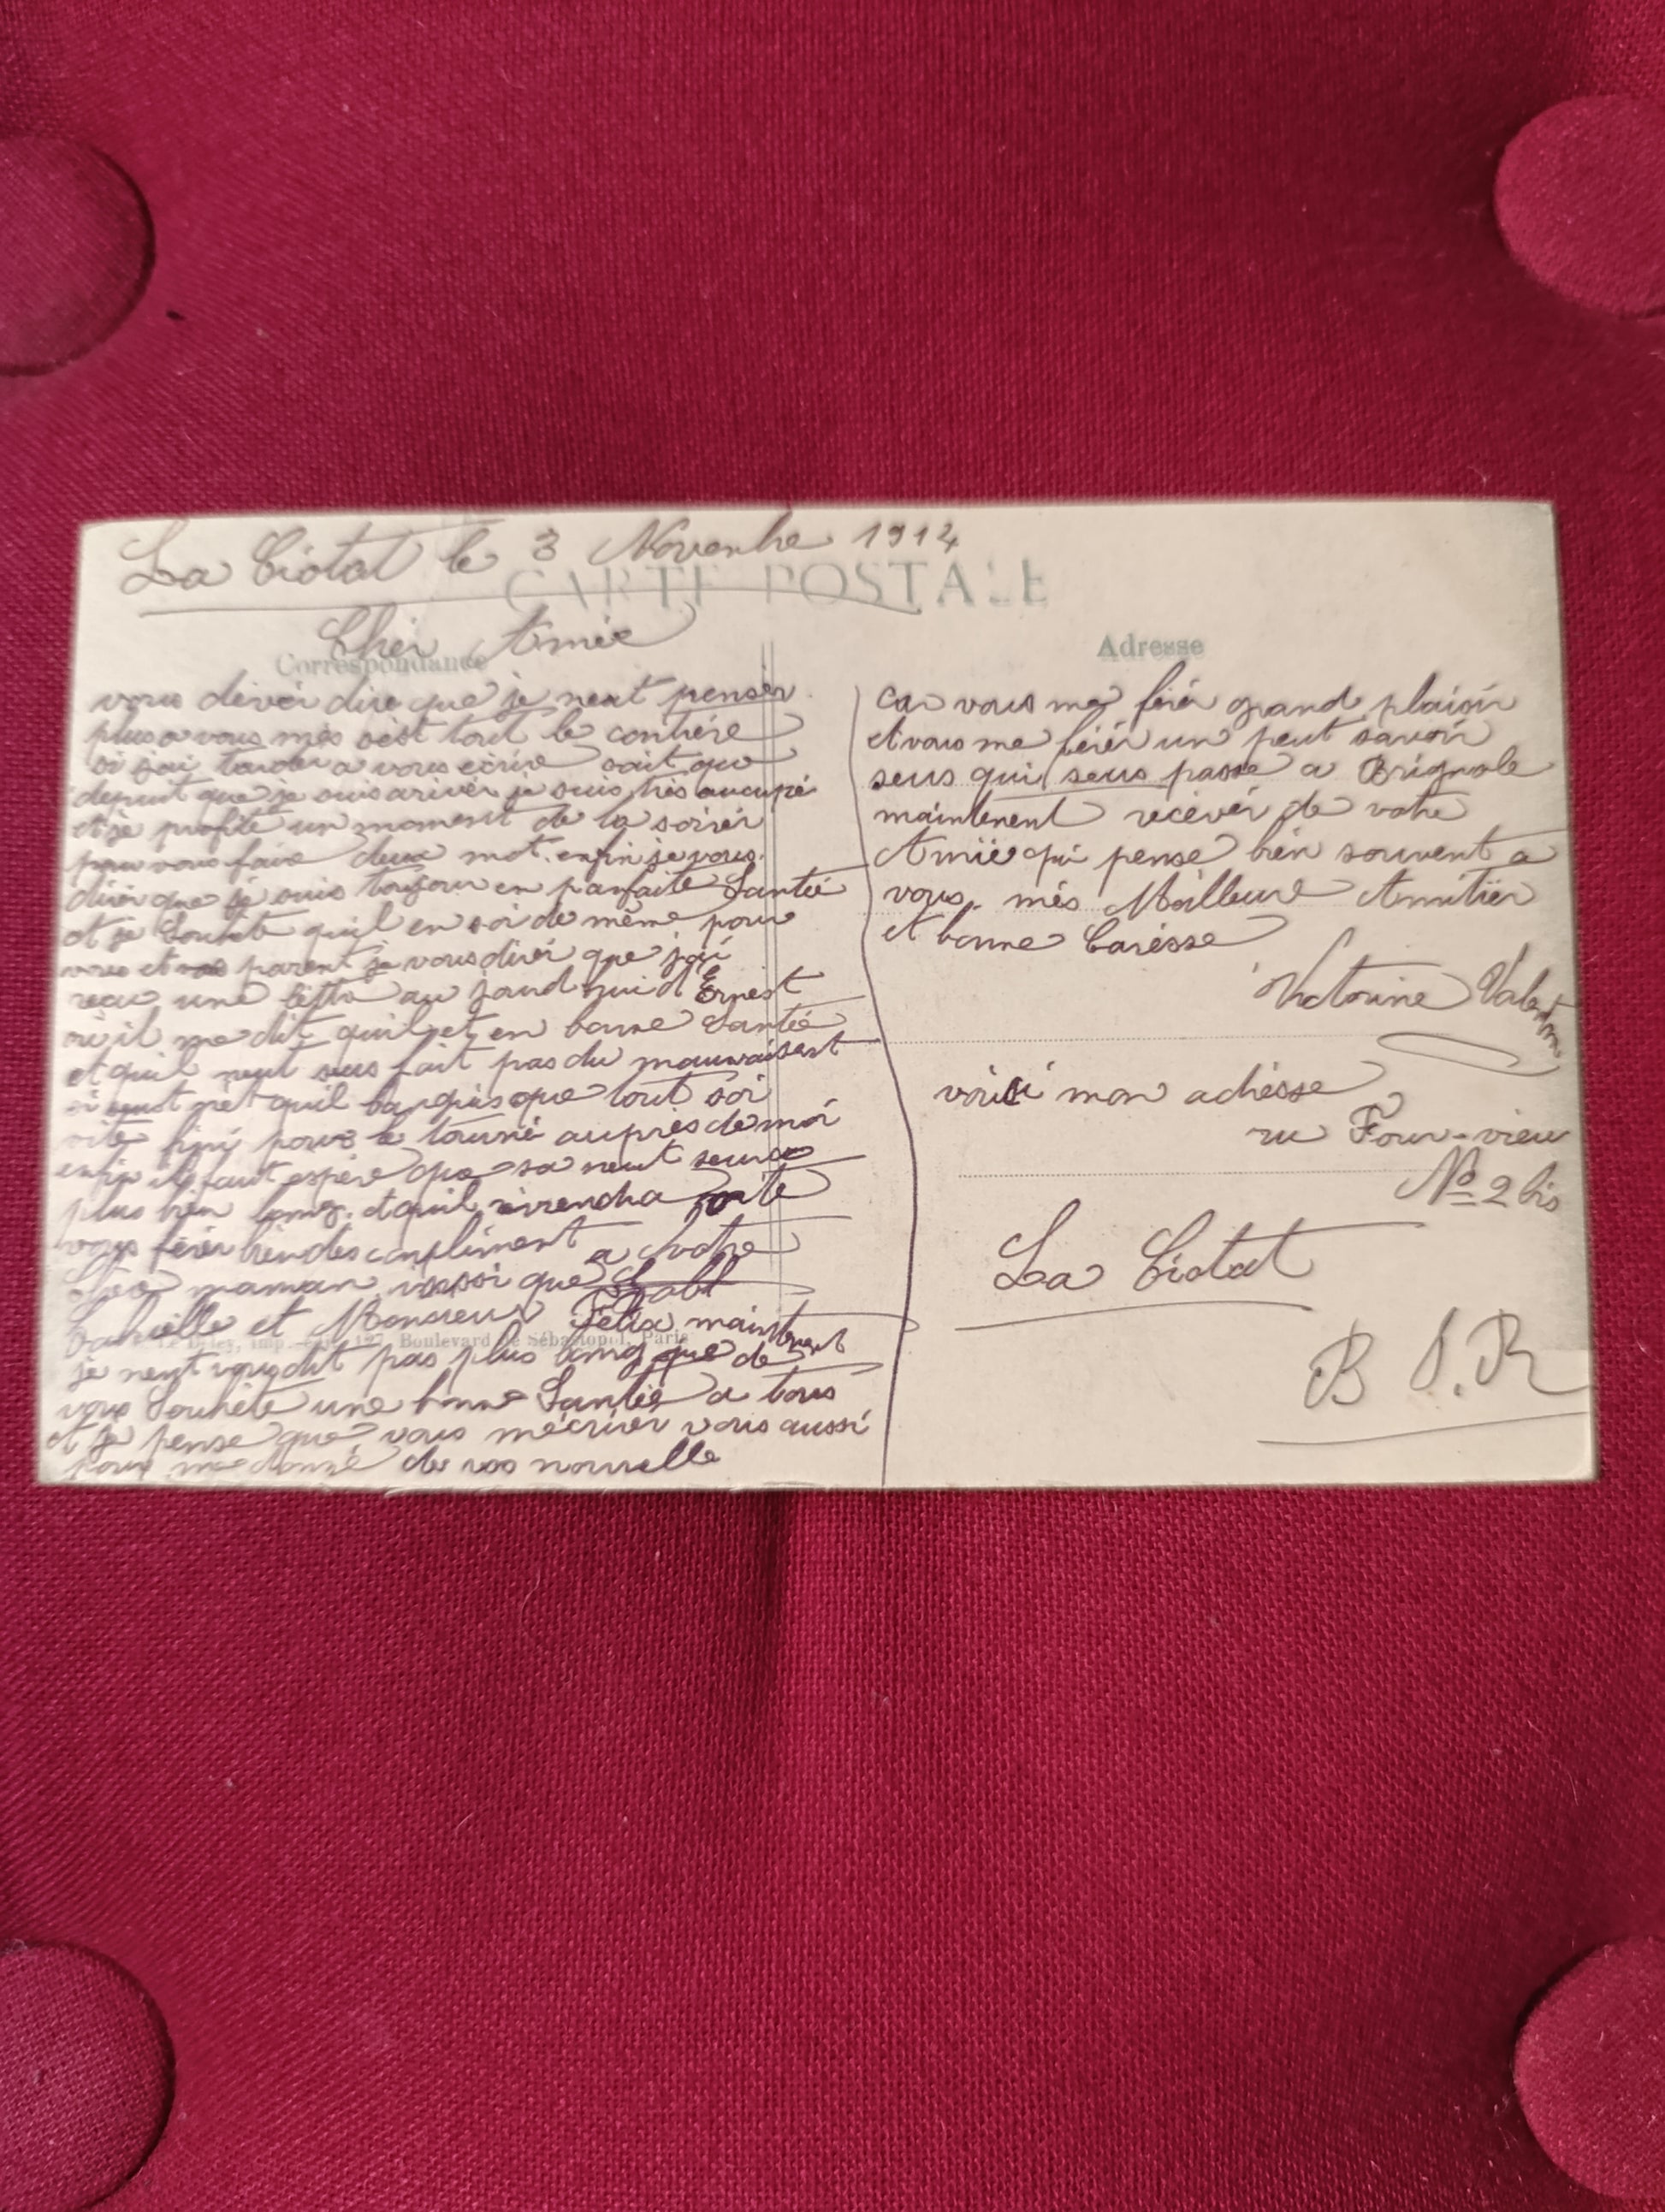 La Ciotat le 3 Novembre 1914
CARTE POSTALE
Cher Amie
Correspondance
vous dévér dire que je neut pensér
plus a vous més sést tout le contrére
si jai tarder a vous ecrire sait que
depuit que je suis ariver je suis trés aucupé
et je profite un moment de la soirér
pour vous faire deux mot. enfin je vous
dirér que je suis toujour en parfaite Santée
et je Souhéte quil en soi de même pour
vous et vos parent je vous dirér que jai
recu une léttre au jourd hui d Ernest
ou il me dit quil et en bonne Santée
et quil neut seus fait pas du mauvaisent
si seust nét quil languis que tout soi
vite fini pour le tourné auprés de moi
enfin il faut espére que sa neut
plus bien long. et quil reviendra vite
vous férér bien des compliment a votre
maman. que
Gabrielle et Monsieur Félix maintenent
127, Boulevard de Sébastopol, Paris
je neut vous dit pas plus long que de
vous Souhéte une bonne Santée a tous
et je pense que vous mécrirér vous aussi
pour me donné de vos nouvelle
Adresse
car vous me férér grand plaisir
et vous me férér un peut savoir
seus qui seus passe a Brignole
maintenent recévér de votre
Amie qui pense bien souvent a
vous. més Meilleure Amitiér
et bonne Carésse
Victorine Valentin
voisi mon adrésse
ru Four-vieu
No 2 bis
La Ciotat
B d. R